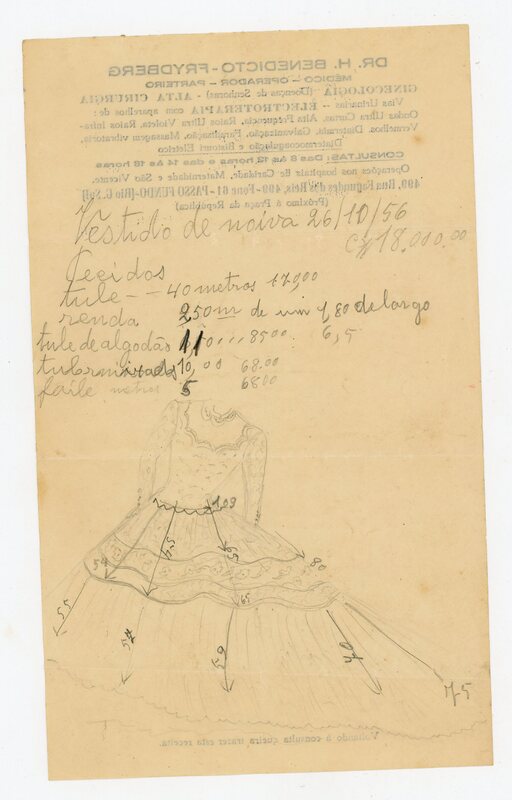 DR. H. BENEDICTO - FRYDBERG
MÉDICO — OPERADOR — PARTEIRO
GINECOLOGIA (Doenças de Senhoras) - ALTA CIRURGIA
Vias Urinarias — ELECTROTERAPIA com aparelhos de:
Ondas Ultra Curtas, Alta Frequencia, Raios Ultra Violeta, Raios Infra-
Vermelhos, Diatermia, Galvanização, Faradização, Massagem vibratoria,
Diatermocoagulação e Bisturi Eletrico
CONSULTAS: Das 8 ás 12 horas e das 14 ás 18 horas
Operações nos hospitaes de Caridade, Maternidade e São Vicente.
499, Rua Fagundes dos Reis, 499 - Fone 61 - PASSO FUNDO - (Rio G. Sul)
(Próximo à Praça da República)
Vestido de noiva 26/10/56
Cr$ 18.000.00
Tecidos
tule - - 40 metros 17900
renda 250m de um 1,80 de largo
tule de algodão 11 8500 6,5
10,00 68.00
faile metros 5 6800
109
54 65 59 80
65
55 54 59 70
75
Voltando à consulta queira trazer esta receita.